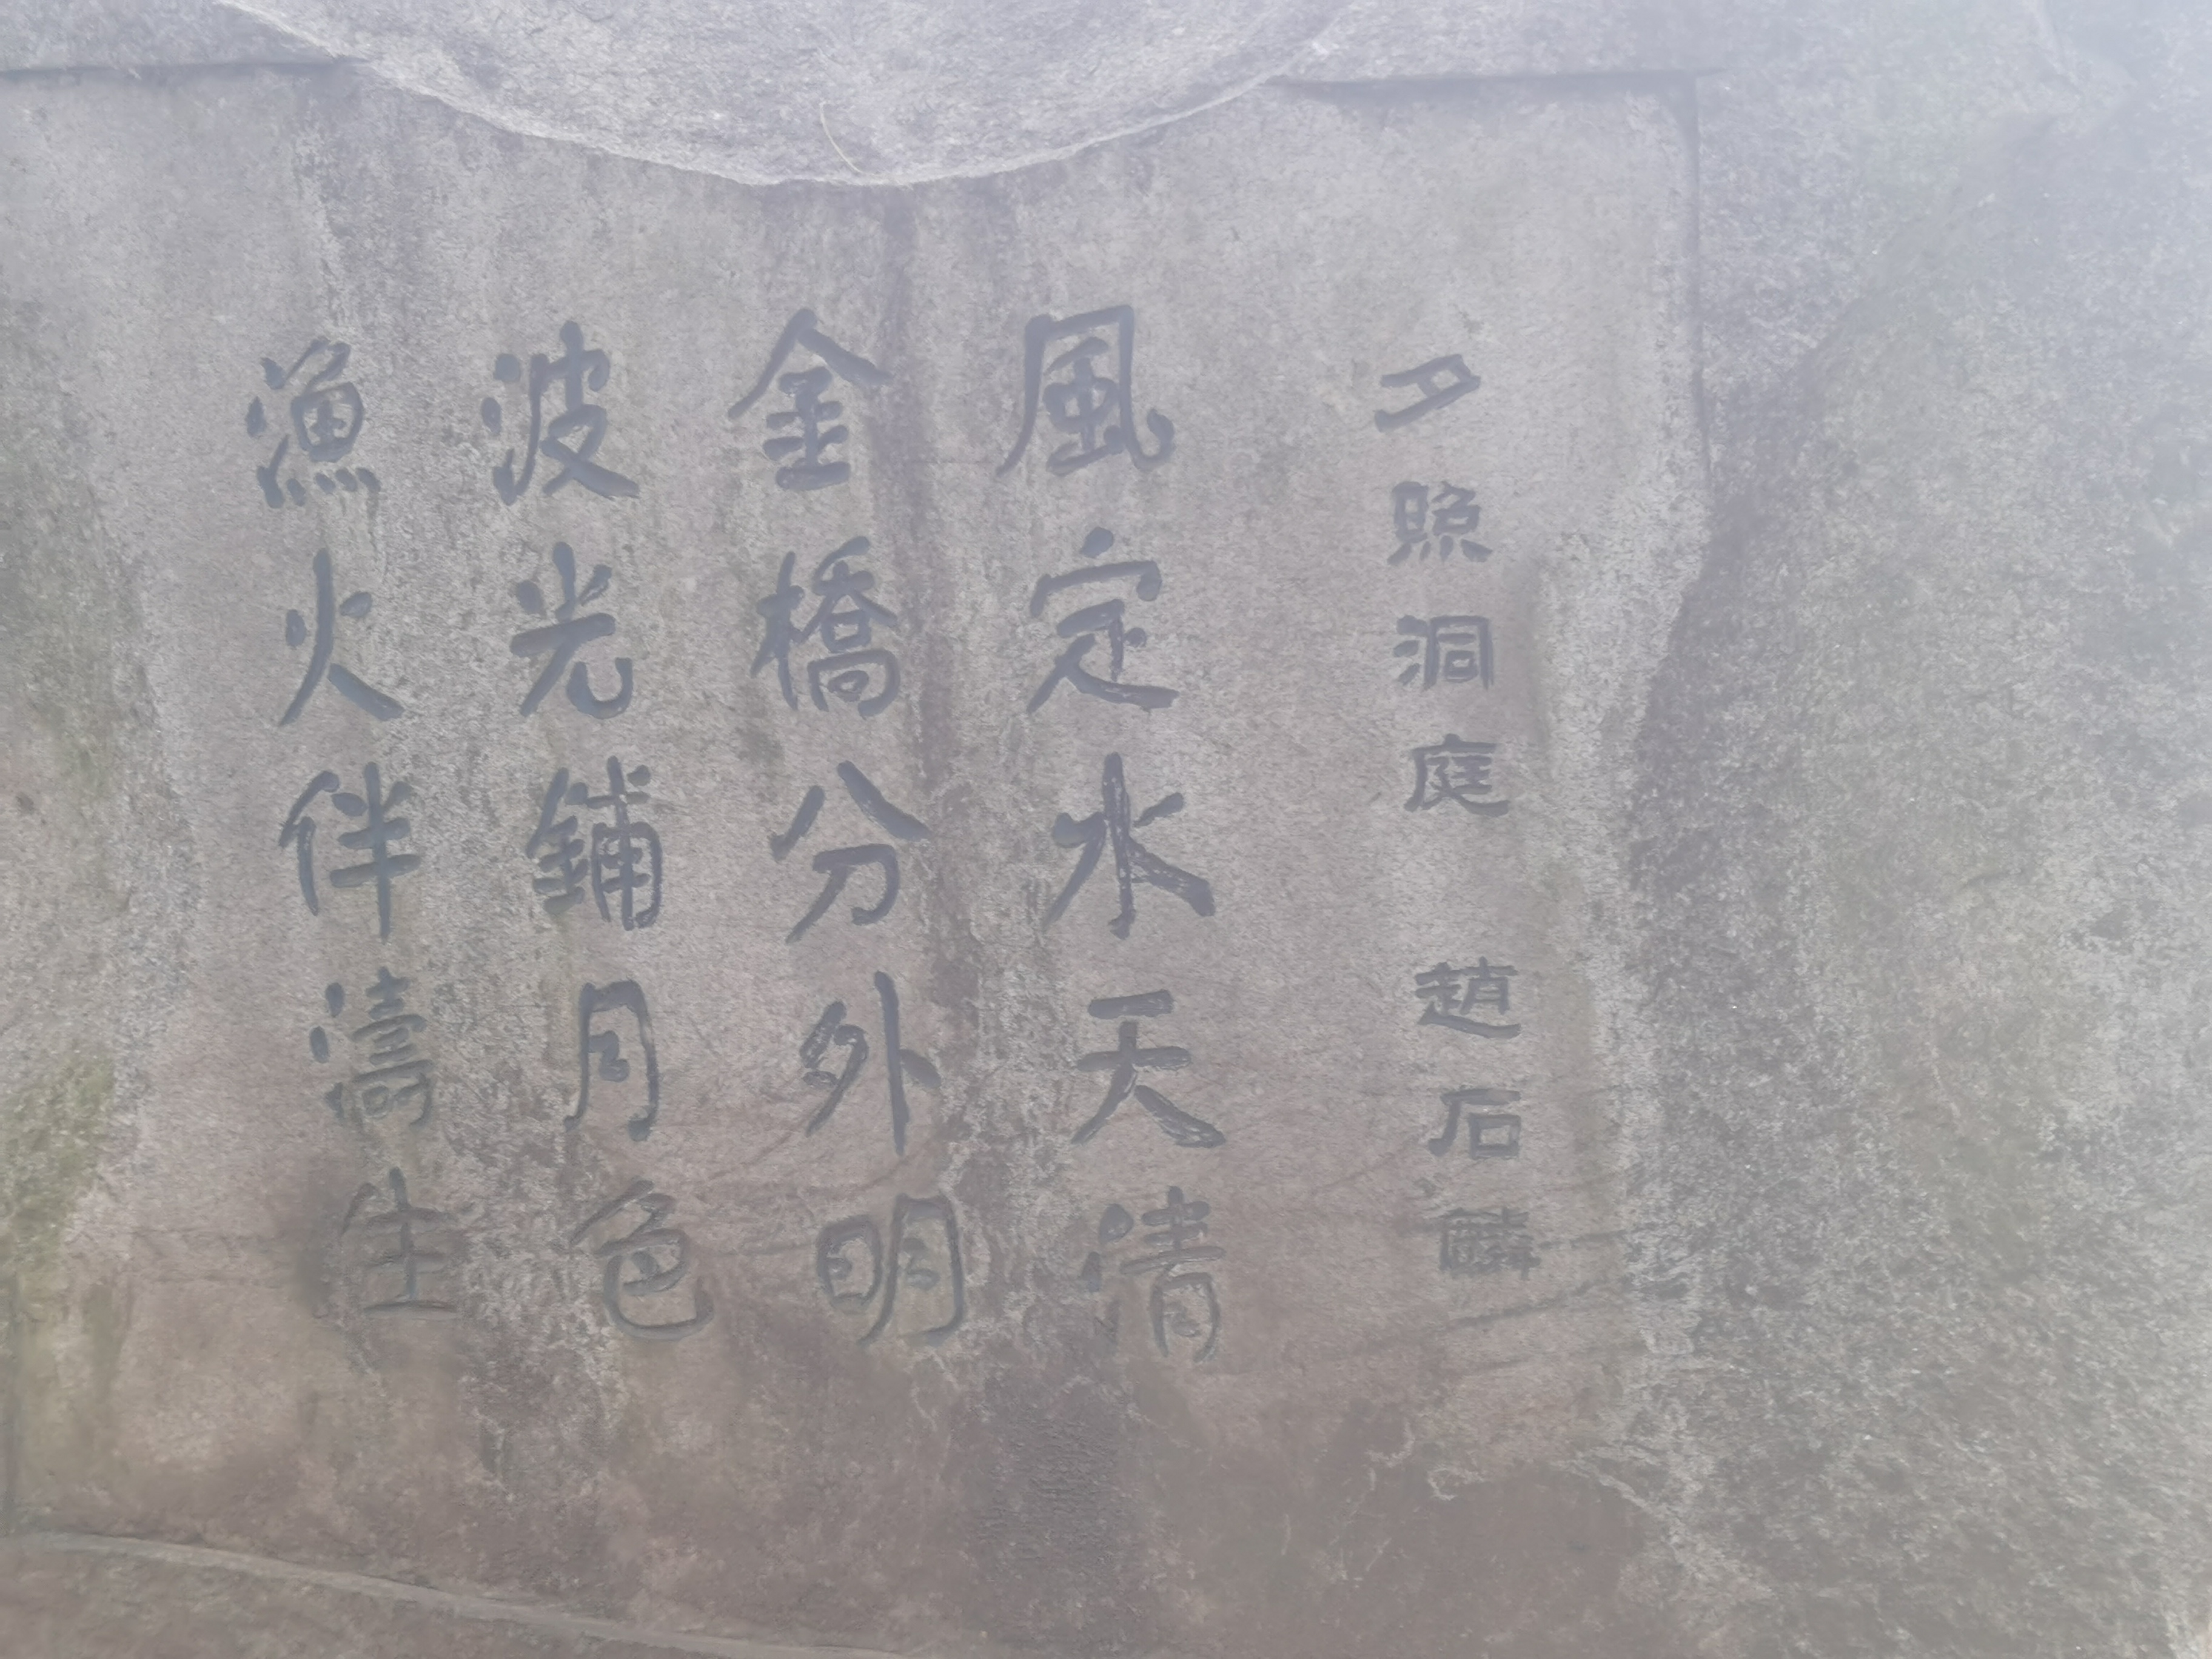 夕照洞庭 趙石麟
風定水天清
金橋分外明
波光鋪月色
漁火伴濤生